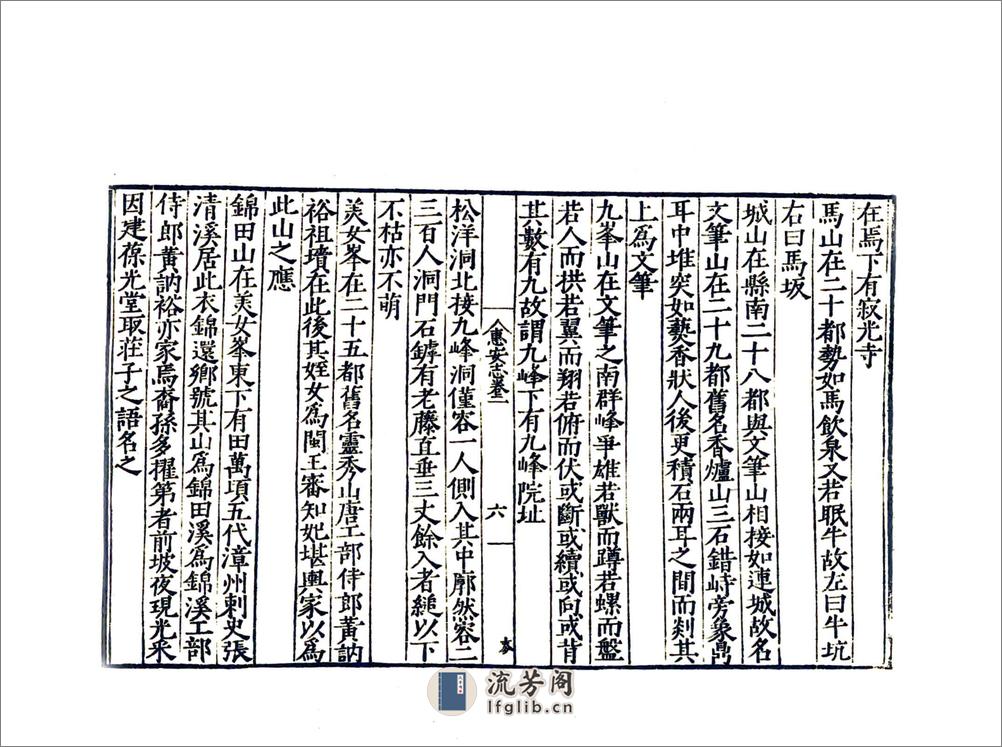 在焉下有寂光寺
馬山在二十都勢如馬飲泉又若眠牛故左曰牛坑
右曰馬坂
城山在縣南二十八都與文筆山相接如連城故名
文筆山在二十九都舊名香爐山三石錯峙旁象鼎
耳中堆突如爇香狀人後更積石兩耳之間而剡其
上爲文筆
九峯山在文筆之南群峰爭雄若獸而蹲若螺而盤
若人而拱若翼而翔若俯而伏或斷或續或向或背
其數有九故謂九峰下有九峰院址
惠安志卷二
六
松洋洞北接九峰洞僅容一人側入其中廓然容二
三百人洞門石罅有老藤直垂三丈餘入者縋以下
不枯亦不萌
美女峯在二十五都舊名靈秀山唐工部侍郎黃訥
裕祖墳在此後其姪女爲閩王審知妃堪輿家以爲
此山之應
錦田山在美女峯東下有田萬頃五代漳州刺史張
清溪居此衣錦還鄉號其山爲錦田溪爲錦溪工部
侍郎黃訥裕亦家焉裔孫多擢第者前坡夜現光采
因建葆光堂取莊子之語名之
流芳阁
lfglib.cn